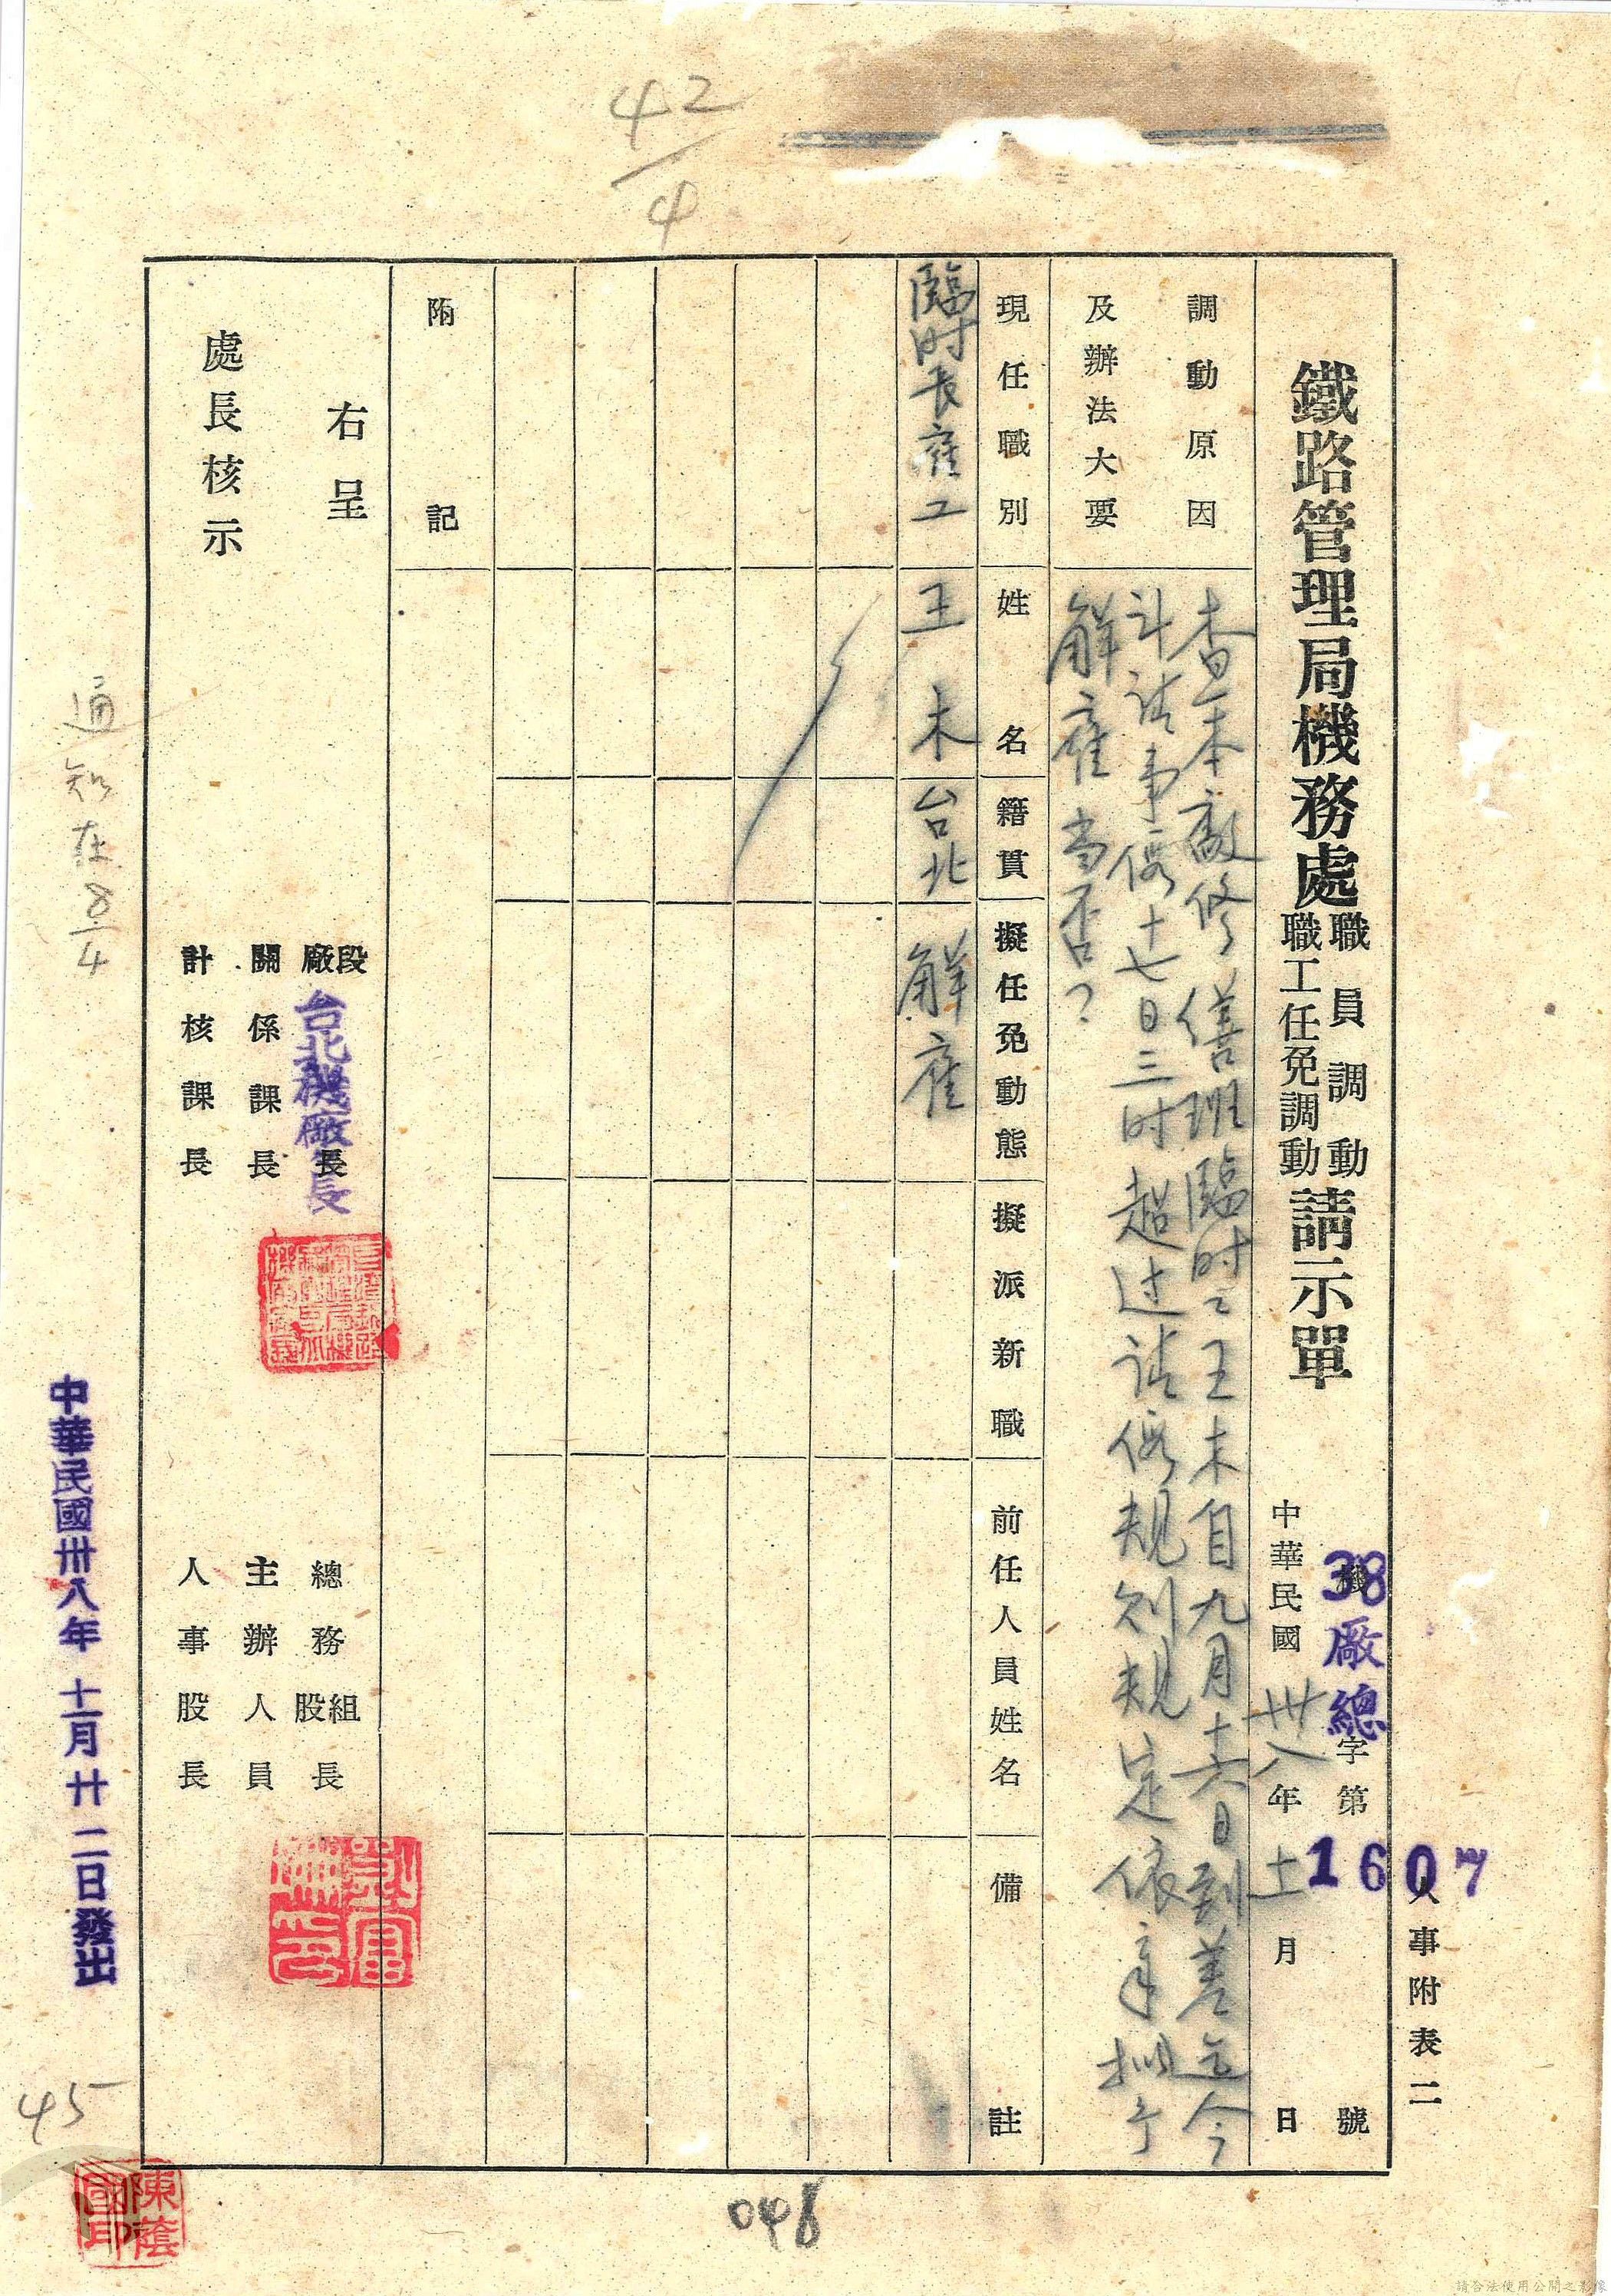 人事附表二
鐵路管理局機務處
職員調動
職工任免調動
請示單
機字第號
38廠總
1607
中華民國卅八年十一月 日
調動原因
及辦法大要
查本廠修繕班臨时工王木自九月十六日到差迄今
計請事假十七日三时超过請假規則規定依章拟予
解雇当否?
現任職別
姓名
籍貫
擬任免動態
擬派新職
前任人員姓名
備註
臨时長雇工
王木
台北
解雇
附記
右呈
處長核示
段
廠長
台北機廠長
關係課長
計核課長
總務組
股長
主辦人員
人事股長
中華民國卅八年十一月廿二日發出
通知在8/4
42/4
45
048
陳蔭國印
請合法使用公開之影像